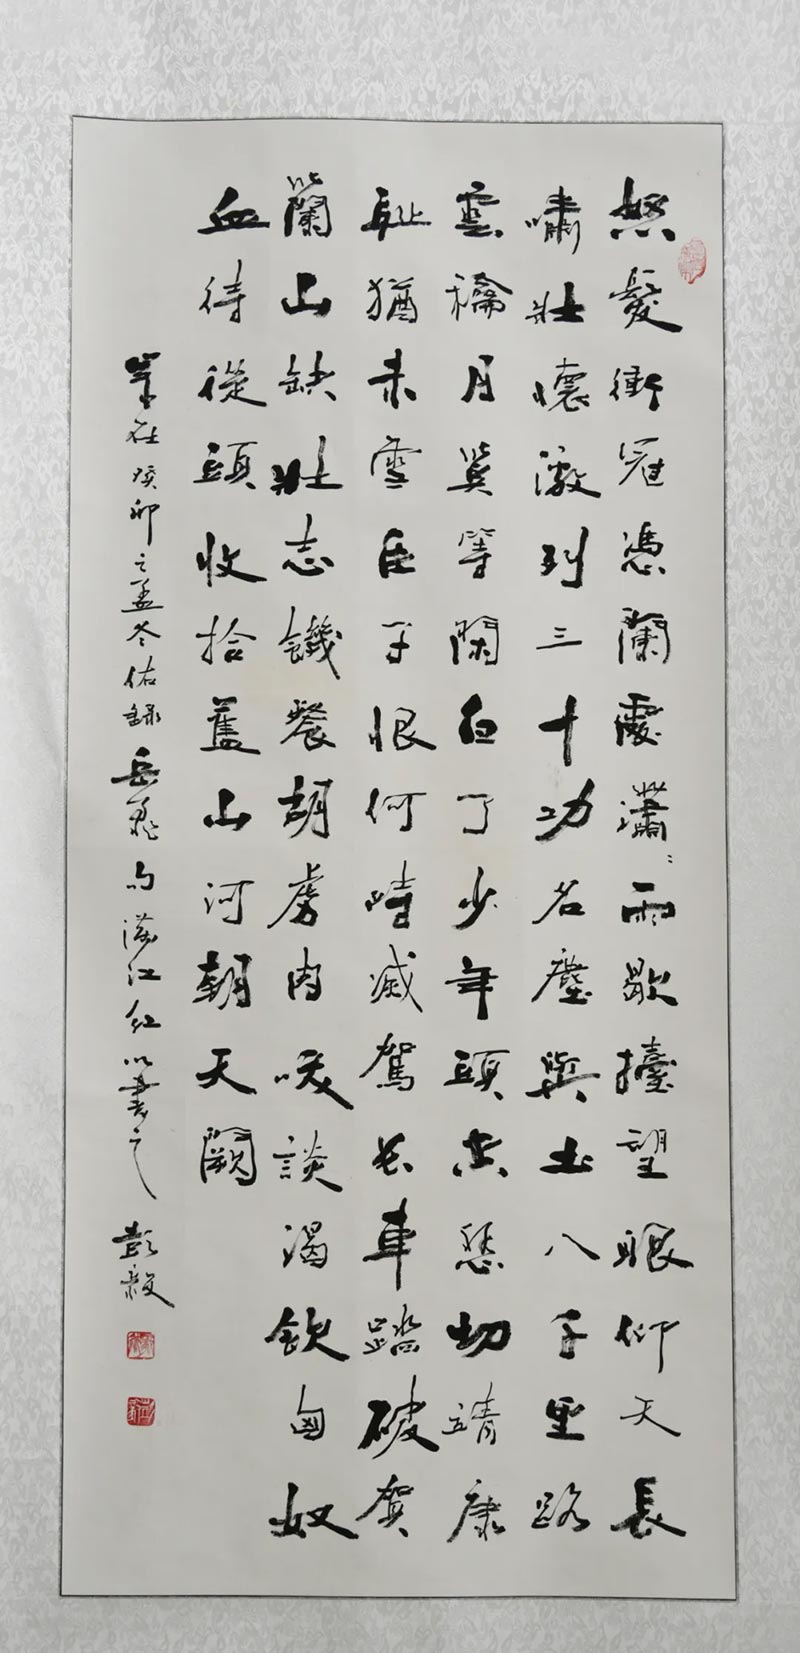 怒髮衝冠憑闌處瀟〻雨歇擡望眼仰天長
嘯壯懷激列三十功名塵與土八千里路
雲龢月莫等閑白了少年頭空悲切靖康
耻猶未雪臣子恨何時滅駕長車踏破賀
蘭山缺壯志饑餐胡虜肉咲談渴飲匈奴
血待從頭收拾舊山河朝天闕
歲在癸卯之孟冬佑錄岳飛句滿江紅以書之 彭毅